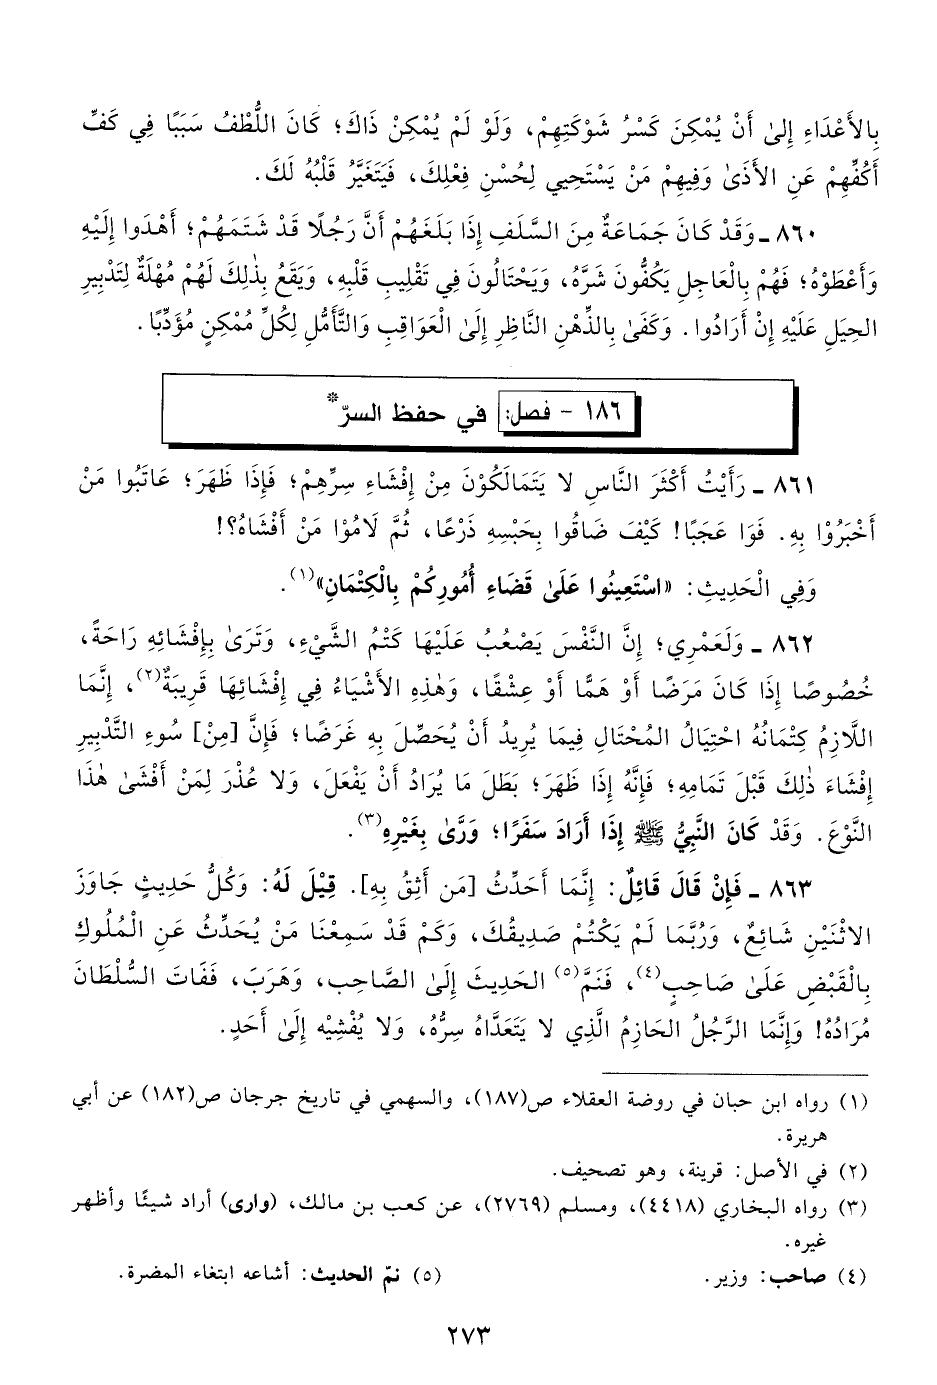 بِالأَعْدَاءِ إِلىٰ أَنْ يُمْكِنَ كَسْرُ شَوْكَتِهِمْ، وَلَوْ لَمْ يُمْكِنْ ذَاكَ؛ كَانَ اللُّطْفُ سَبَبًا فِي كَفِّ
أَكُفِّهِمْ عَنِ الأَذَىٰ وَفِيهِمْ مَنْ يَسْتَحيي لِحُسْنِ فِعْلِكَ، فَيَتَغَيَّرُ قَلْبُهُ لَكَ.
٨٦٠ ـ وَقَدْ كَانَ جَمَاعَةٌ مِنَ السَّلَفِ إِذَا بَلَغَهُمْ أَنَّ رَجُلًا قَدْ شَتَمَهُمْ؛ أَهْدَوا إِلَيْهِ
وَأَعْطَوْهُ؛ فَهُمْ بِالْعَاجِلِ يَكُفُّونَ شَرَّهُ، وَيَحْتَالُونَ فِي تَقْلِيبِ قَلْبِهِ، وَيَقَعُ بِذٰلِكَ لَهُمْ مُهْلَةٌ لِتَدْبِيرِ
الحِيَلِ عَلَيْهِ إِنْ أَرَادُوا. وَكَفَىٰ بِالذِّهْنِ النَّاظِرِ إِلَىٰ الْعَوَاقِبِ وَالتَّأَمُّلِ لِكُلِّ مُمْكِنٍ مُؤَدِّبًا.
١٨٦ - فصل: في حفظ السرّ*
٨٦١ ـ رَأَيْتُ أَكْثَرَ النَّاسِ لا يَتَمَالَكُوْنَ مِنْ إِفْشَاءِ سِرِّهِمْ؛ فَإِذَا ظَهَرَ؛ عَاتَبُوا مَنْ
أَخْبَرُوْا بِهِ. فَوَا عَجَبًا! كَيْفَ ضَاقُوا بِحَبْسِهِ ذَرْعًا، ثُمَّ لَامُوْا مَنْ أَفْشَاهُ؟!
وَفِي الْحَدِيثِ: «اسْتَعِينُوا عَلَىٰ قَضَاءِ أُمُورِكُمْ بِالْكِتْمَانِ»(١).
٨٦٢ ـ وَلَعَمْرِي؛ إِنَّ النَّفْسَ يَصْعُبُ عَلَيْهَا كَتْمُ الشَّيْءِ، وَتَرَىٰ بِإِفْشَائِهِ رَاحَةً،
خُصُوصًا إِذَا كَانَ مَرَضًا أَوْ هَمًّا أَوْ عِشْقًا، وَهٰذِهِ الأَشْيَاءُ فِي إِفْشَائِهَا قَرِيبَةٌ(٢)، إِنَّمَا
اللَّازِمُ كِتْمَانُهُ احْتِيَالُ المُحْتَالِ فِيمَا يُرِيدُ أَنْ يُحَصِّلَ بِهِ غَرَضًا؛ فَإِنَّ [مِنْ] سُوءِ التَّدْبِيرِ
إِفْشَاءَ ذٰلِكَ قَبْلَ تَمَامِهِ؛ فَإِنَّهُ إِذَا ظَهَرَ؛ بَطَلَ مَا يُرَادُ أَنْ يَفْعَلَ، وَلا عُذْرَ لِمَنْ أَفْشَىٰ هٰذَا
النَّوْعَ. وَقَدْ كَانَ النَّبِيُّ ﷺ إِذَا أَرَادَ سَفَرًا؛ وَرَّىٰ بِغَيْرِهِ(٣).
٨٦٣ ـ فَإِنْ قَالَ قَائِلٌ: إِنَّمَا أُحَدِّثُ [مَن أَثِقُ بِهِ]. قِيْلَ لَهُ: وَكُلُّ حَدِيثٍ جَاوَزَ
الاثْنَيْنِ شَائِعٌ، وَرُبَّمَا لَمْ يَكْتُمْ صَدِيقُكَ، وَكَمْ قَدْ سَمِعْنَا مَنْ يُحَدِّثُ عَنِ الْمُلُوكِ
بِالْقَبْضِ عَلَىٰ صَاحِبٍ(٤)، فَنَمَّ(٥) الحَدِيثَ إِلَىٰ الصَّاحِبِ، وَهَرَبَ، فَفَاتَ السُّلْطَانَ
مُرَادُهُ! وَإِنَّمَا الرَّجُلُ الحَازِمُ الَّذِي لا يَتَعَدَّاهُ سِرُّهُ، وَلا يُفْشِيْهِ إِلَىٰ أَحَدٍ.
(١) رواه ابن حبان في روضة العقلاء ص(١٨٧)، والسهمي في تاريخ جرجان ص(١٨٢) عن أبي
هريرة.
(٢) في الأصل: قرينة، وهو تصحيف.
(٣) رواه البخاري (٤٤١٨)، ومسلم (٢٧٦٩)، عن كعب بن مالك، (وارى) أراد شيئًا وأظهر
غيره.
(٤) صاحب: وزير. (٥) نمّ الحديث: أشاعه ابتغاء المضرة.
٢٧٣